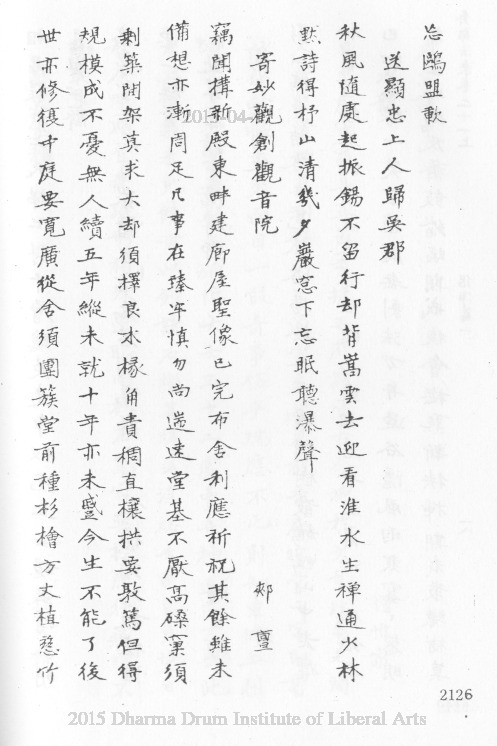 忘鷗盟歟
送顯忠上人歸吳郡
秋風隨處起振錫不留行却背嵩雲去迎看淮水生禪通少林
默詩得杼山清幾夕巖窓下忘眠聽瀑聲
寄妙觀創觀音院 郟亶
竊聞構新殿東畔建廊屋聖像已完布舍利應祈祝其餘雖未
備想亦漸周足凡事在臻牢慎勿尚遄速堂基不厭高磉窠須
剩築間架莫求大却須擇良木椽角貴稠直欀拱要敦篤但得
規模成不憂無人續五年縱未就十年亦未蹙今生不能了後
世亦修復中庭要寬廣從舍須團簇堂前種杉檜方丈植慈竹
2126
2015-04-
2015 Dharma Drum Institute of Liberal Arts